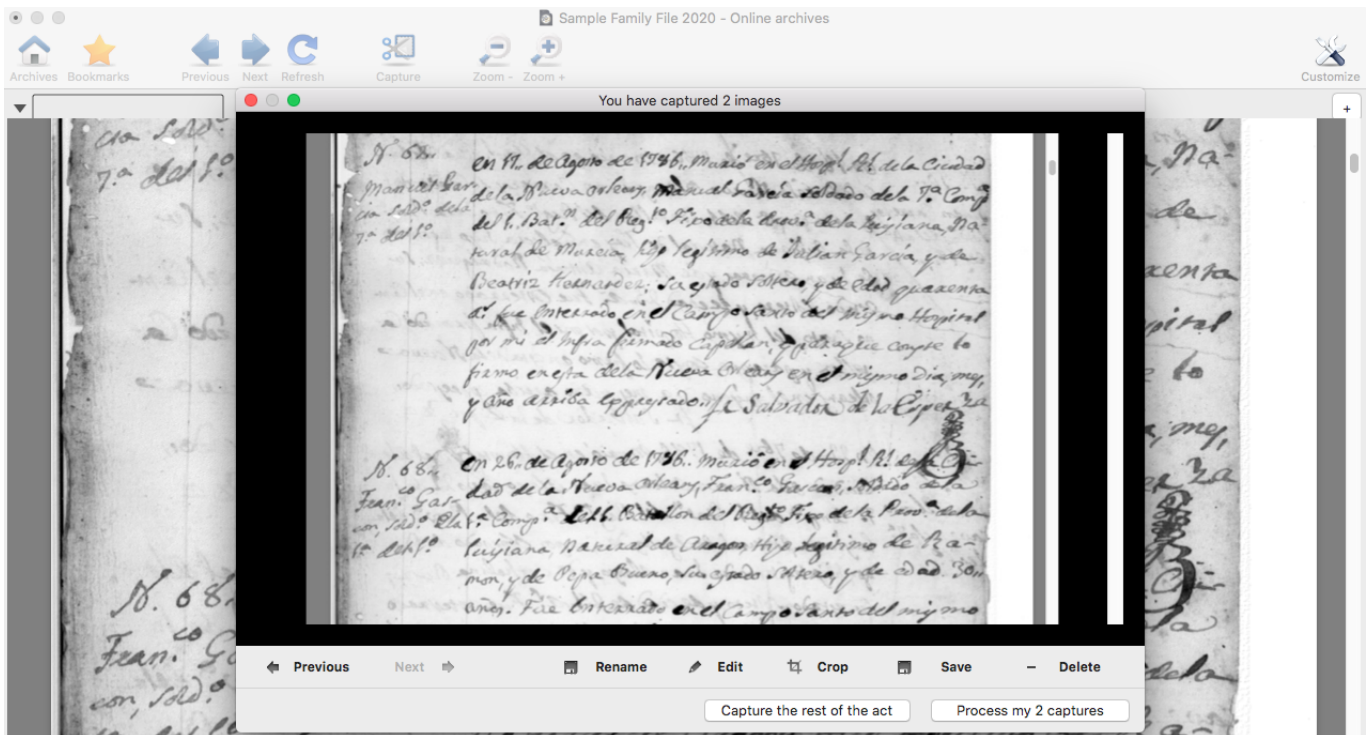 Sample Family File 2020 - Online archives
Archives Bookmarks Previous Next Refresh Capture Zoom - Zoom + Customize
You have captured 2 images
+
cia Sold.º
7.ª del 1.º
N. 68.
Fran.co Ga
con, sold.º
N. 67.
Manuel Gar-
cia Sold.º dela
7.ª del 1.º
en 17. de Agosto de 1786. Murió en el Hosp.l Rl. dela Ciudad
dela Nueva Orleans, Manuel Garcia Soldado dela 7.ª Comp.ª
del 1. Bat.n del Reg.to Fixo dela dela Luisiana, Na-
tural de Murcia, hijo legitimo de Julian Garcia, y de
Beatriz Hernandez, su estado soltero, y de edad quarenta
a.s fue Enterrado en el Campo Santo del mismo Hospital
por mi el Infra firmado Capellan, y paraque conste lo
firmo en esta dela Nueva Orleans en el mismo dia, mes,
y año arriba expresado. Fr. Salvador de la Esper.za
N. 68.
Fran.co Gas-
con, sold.º dla
1.ª del 1.º
en 26. de Agosto de 1786. Murió en el Hosp.l Rl. dela Ciu-
dad dela Nueva Orleans, Fran.co Gascon, Soldado dela
1.ª Comp.ª del 1. Batallon del Reg.to Fixo dela Prov.ª dela
Luisiana, Natural de Aragon, Hijo legitimo de Ra-
mon, y de Pepa Bueno, su estado soltero, y de edad 30
años. Fue Enterrado en el Campo Santo del mismo
, Na-
de
renta
pital
lo
, mes,
za
Ci-
la
dela
Previous Next Rename Edit Crop Save Delete
Capture the rest of the act Process my 2 captures